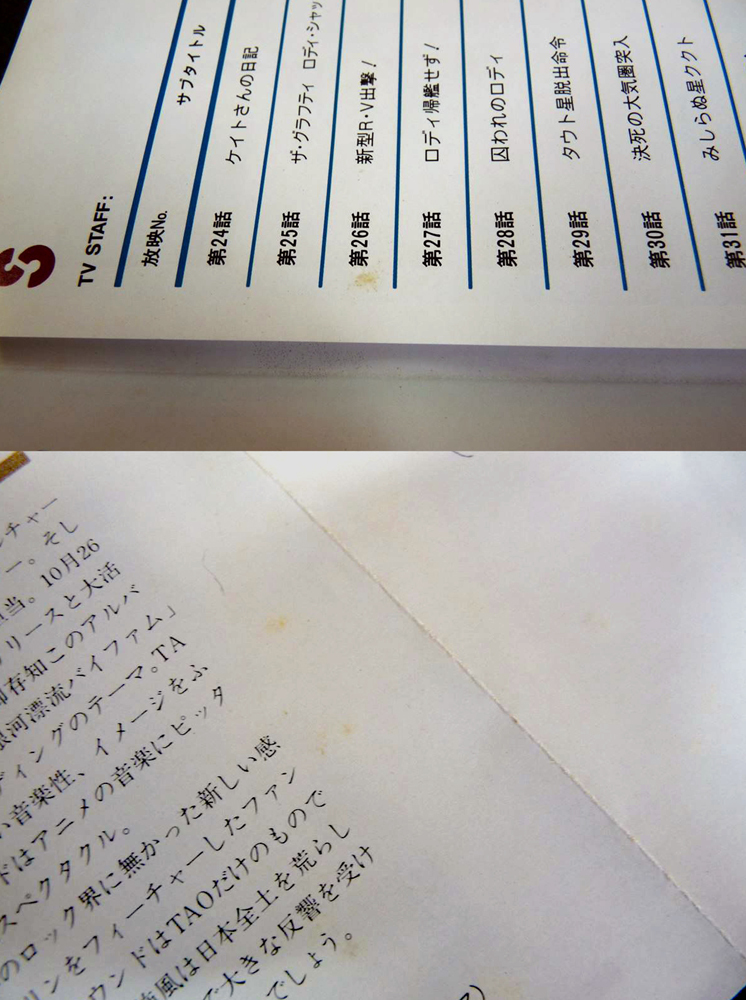 S
TV STAFF:
放映No. サブタイトル
第24話 ケイトさんの日記
第25話 ザ・グラフティ ロディ・シャッ
第26話 新型R・V出撃！
第27話 ロディ帰艦せず！
第28話 囚われのロディ
第29話 タウト星脱出命令
第30話 決死の大気圏突入
第31話 みしらぬ星ククト
チャー
ー。そし
当。10月26
リースと大活
存知このアルバ
河漂流バイファム」
ディングのテーマ。TA
い音楽性、イメージをふ
ドはアニメの音楽にピッタ
スペクタクル。
のロック界に無かった新しい感
リンをフィーチャーしたファン
ウンドはTAOだけのもので
風は日本全土を荒らし
で大きな反響を受け
でしょう。